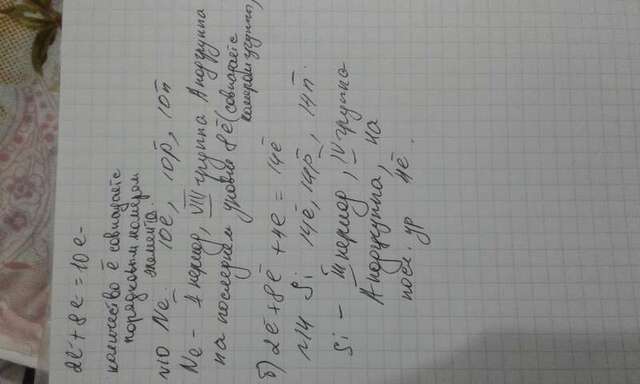 2ē + 8ē = 10ē
количество ē совпадает с
порядковым номером
элемента.
№10 Ne 10ē, 10p̄, 10n̄
Ne - II период, VIII группа А подгруппа
на последнем уровне 8ē (совпадает с
номером группы)
б) 2ē + 8ē + 4ē = 14ē
№14 Si 14ē, 14p̄, 14n̄.
Si - III период, IV группа
А подгруппа, на
посл. ур 4ē.